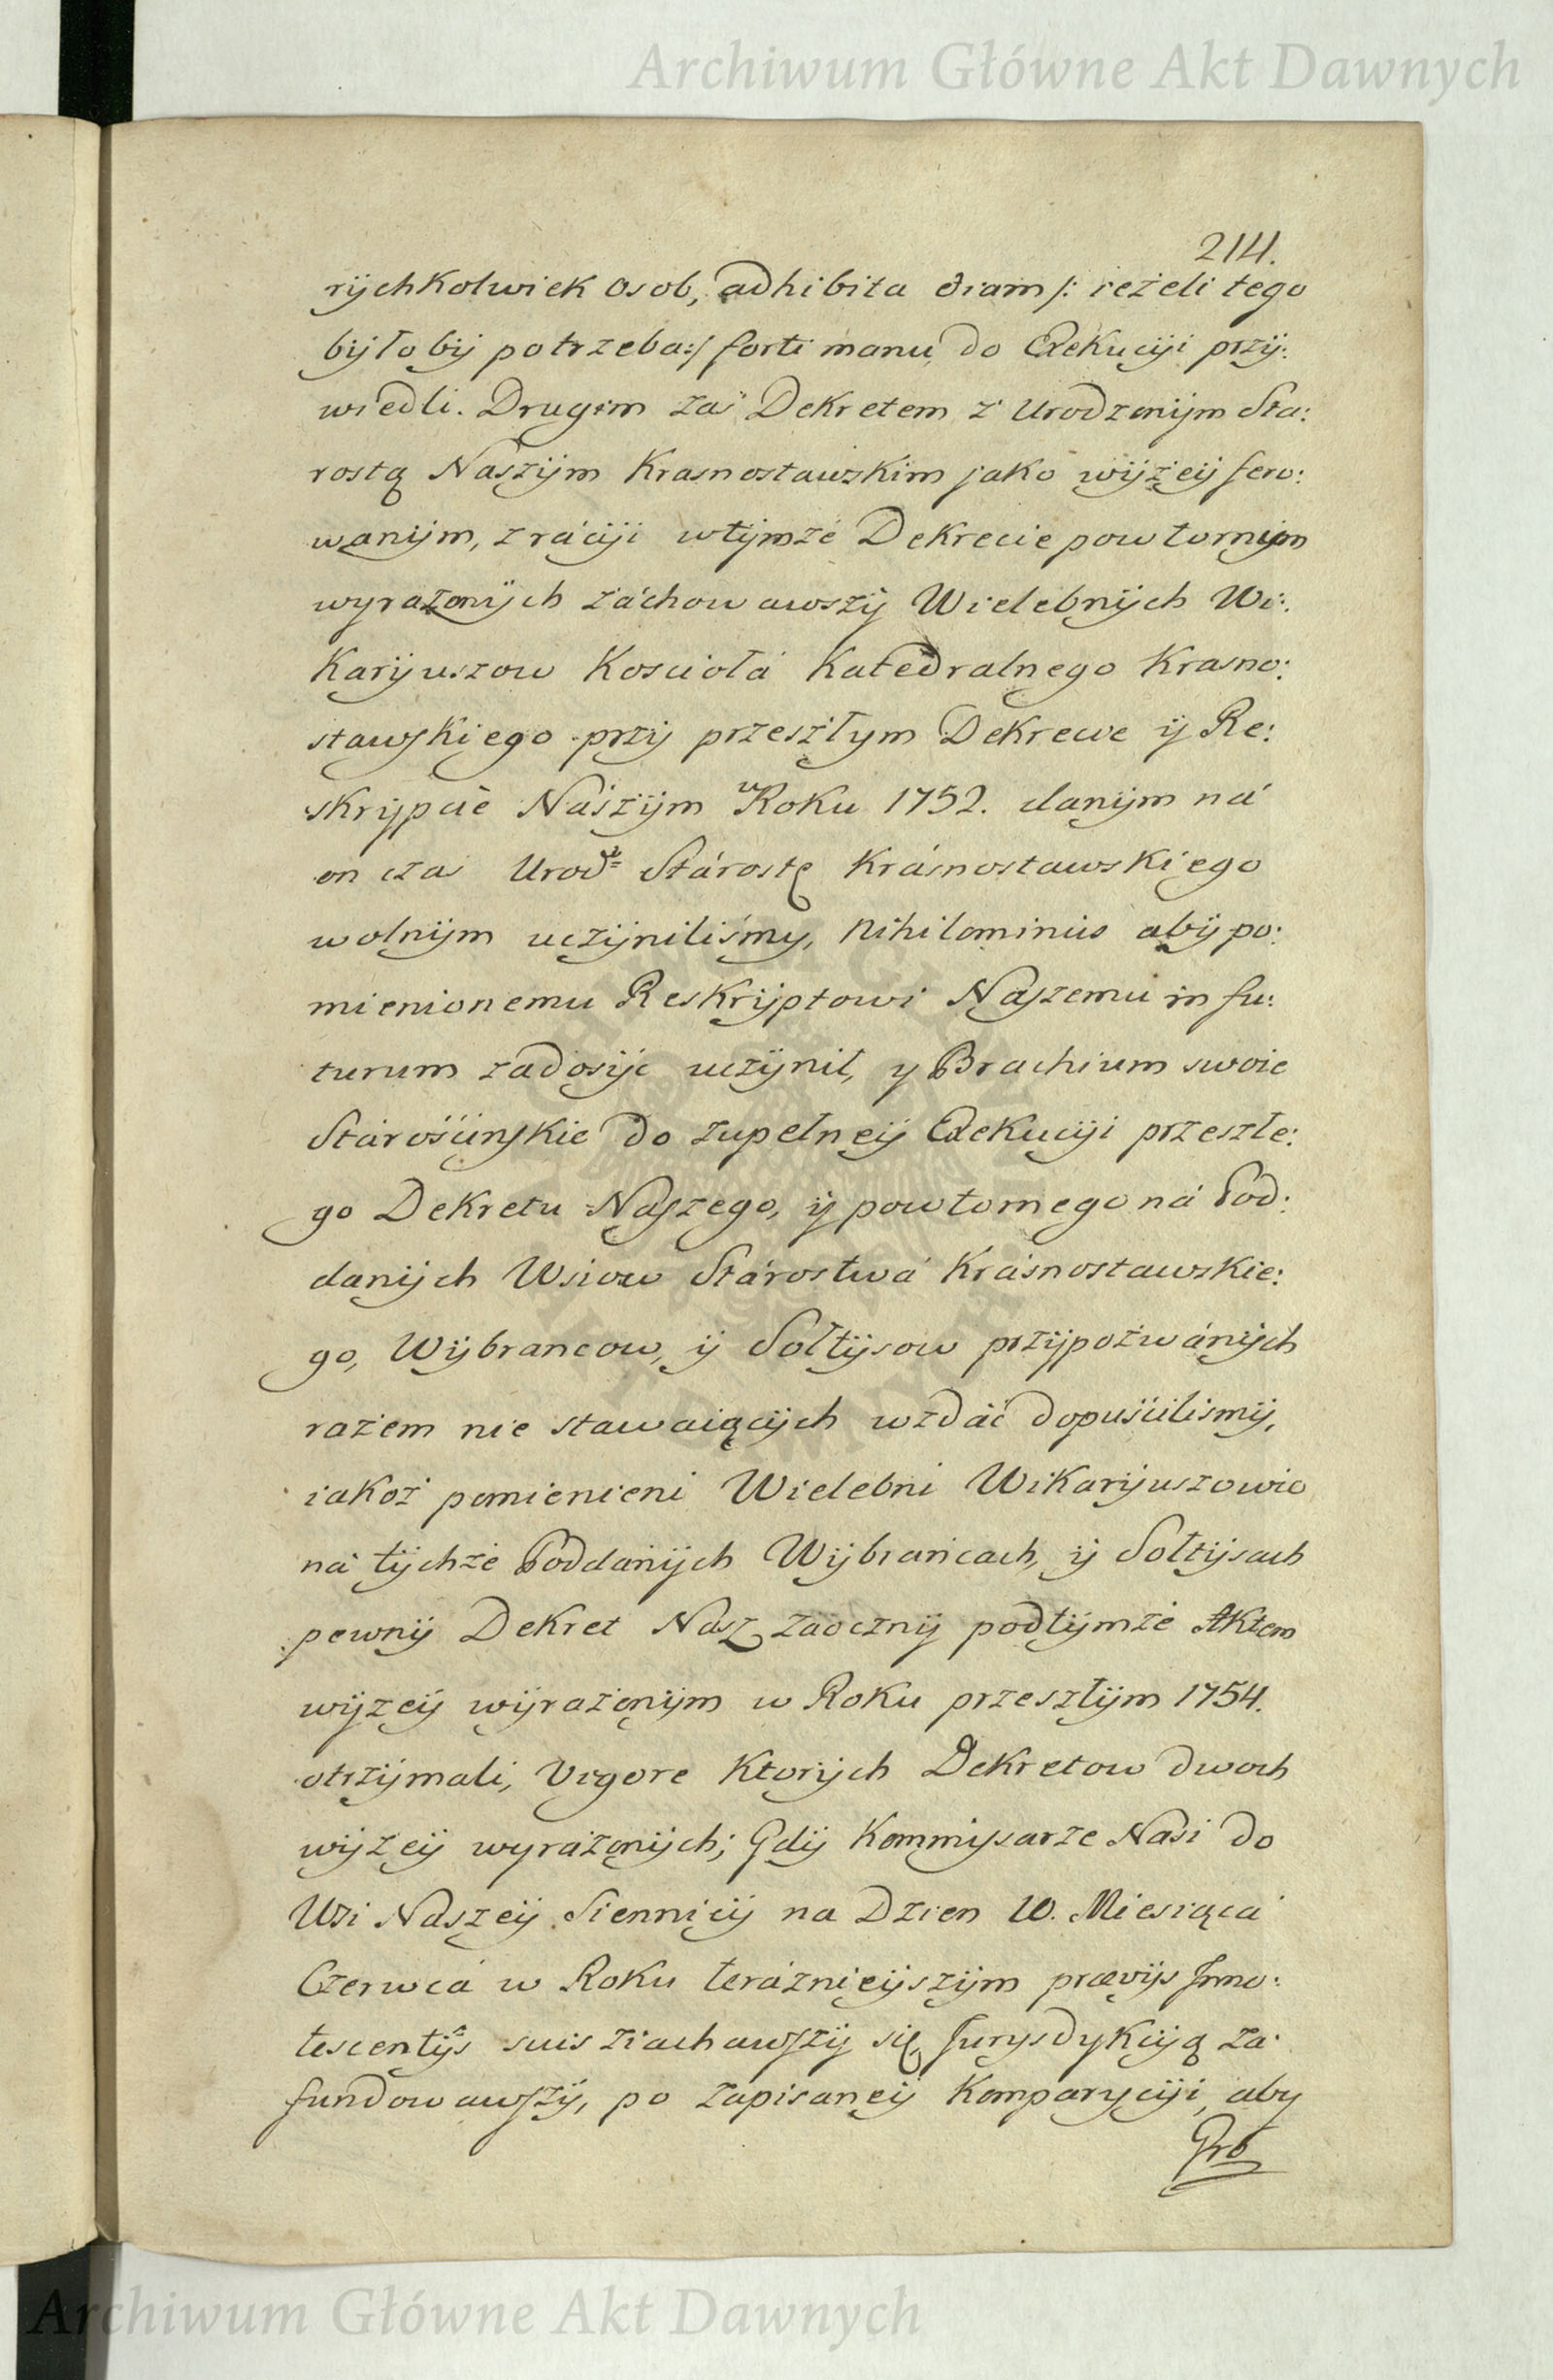 Archiwum Główne Akt Dawnych
214.
rÿchkolwiek osob, adhibita etiam /: ieżeli tego
bÿłobÿ potrzeba:/ forti manu, do Exekucÿi przÿ:
wiedli. Drugim zaś Dekretem z Urodzonÿm Sta:
rostą Naszÿm Krasnostawskim jako wÿżeÿ fero:
wanÿm, z racÿi wtÿmże Dekrecie powtornÿm
wyrażonÿch zachowawszÿ Wielebnÿch Wi:
karÿuszow Kosciołá Katedralnego Krasno:
stawskiego przÿ przeszłym Dekrecie ÿ Re:
skrÿpcie Naszÿm w Roku 1752. danÿm ná
on czas Urodᵒ Stárostę Krásnostawskiego
wolnÿm uczÿniliśmy, nihilominus abÿ po:
mienionemu Reskrÿptowi Naszemu in fu:
turum zadosÿc uczÿnił, y Brachium swoie
Stárościnskie do zupełneÿ Exekucÿi przeszłe:
go Dekretu Naszego, ÿ powtornego ná Pod:
danÿch Wsiow Stárostwá Krásnostawskie:
go, Wÿbrancow, ÿ Sołtÿsow przÿpozwánÿch
razem nie stawaiącÿch wzdáć dopuścilismÿ,
iakoż pomienieni Wielebni Wikarÿuszowie
ná tÿchże Poddanÿch Wÿbrańcach, ÿ Sołtÿsach
pewnÿ Dekret Nasz zaocznÿ podtÿmże Aktem
wÿzeÿ wÿrażonÿm w Roku przeszłÿm 1754.
otrzÿmali, Vigore ktorÿch Dekretow dwoch
wÿżeÿ wyrażonÿch; Gdÿ Kommissarze Nasi do
Wsi Naszeÿ Siennicÿ na Dzien 10. Miesiącá
Czerwcá w Roku teráznieÿszÿm prævijs Inno:
tescentÿs suis ziachawszÿ się, Jurysdykcÿą za:
fundowawszÿ, po zapisaneÿ Komparycÿi, aby
Gro
Archiwum Główne Akt Dawnych